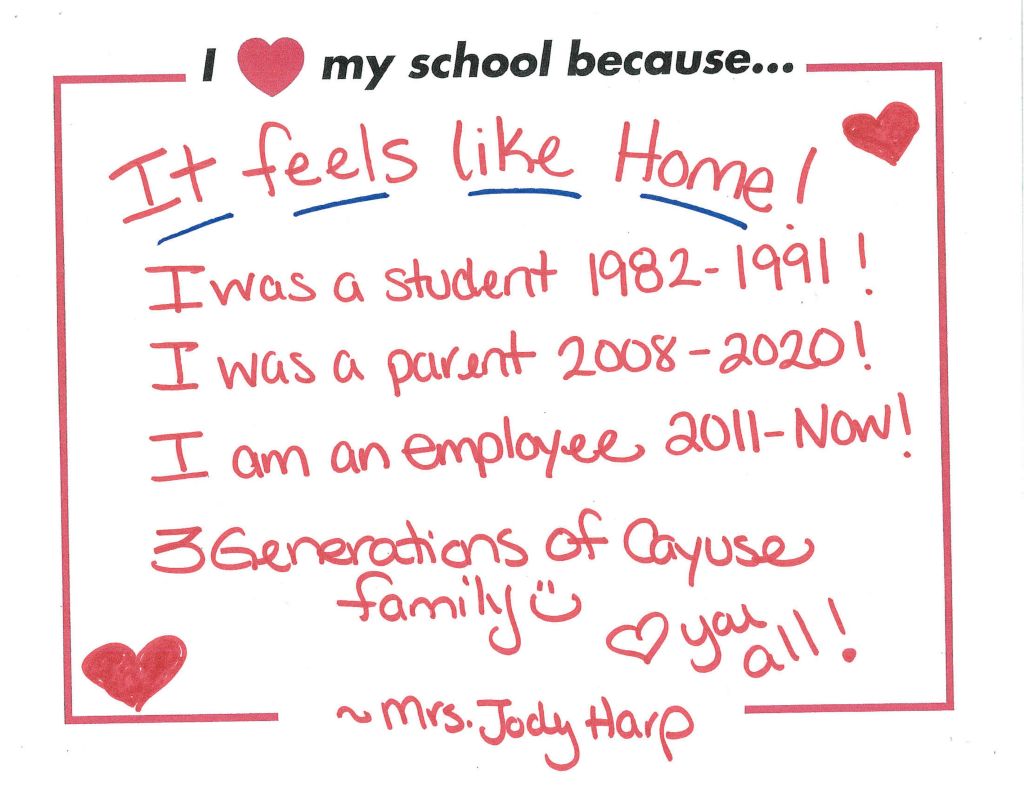 I ❤ my school because...
It feels like Home!
I was a student 1982-1991!
I was a parent 2008-2020!
I am an employee 2011-Now!
3 Generations of Cayuse
family ☺
♡ you
all!
~Mrs. Jody Harp